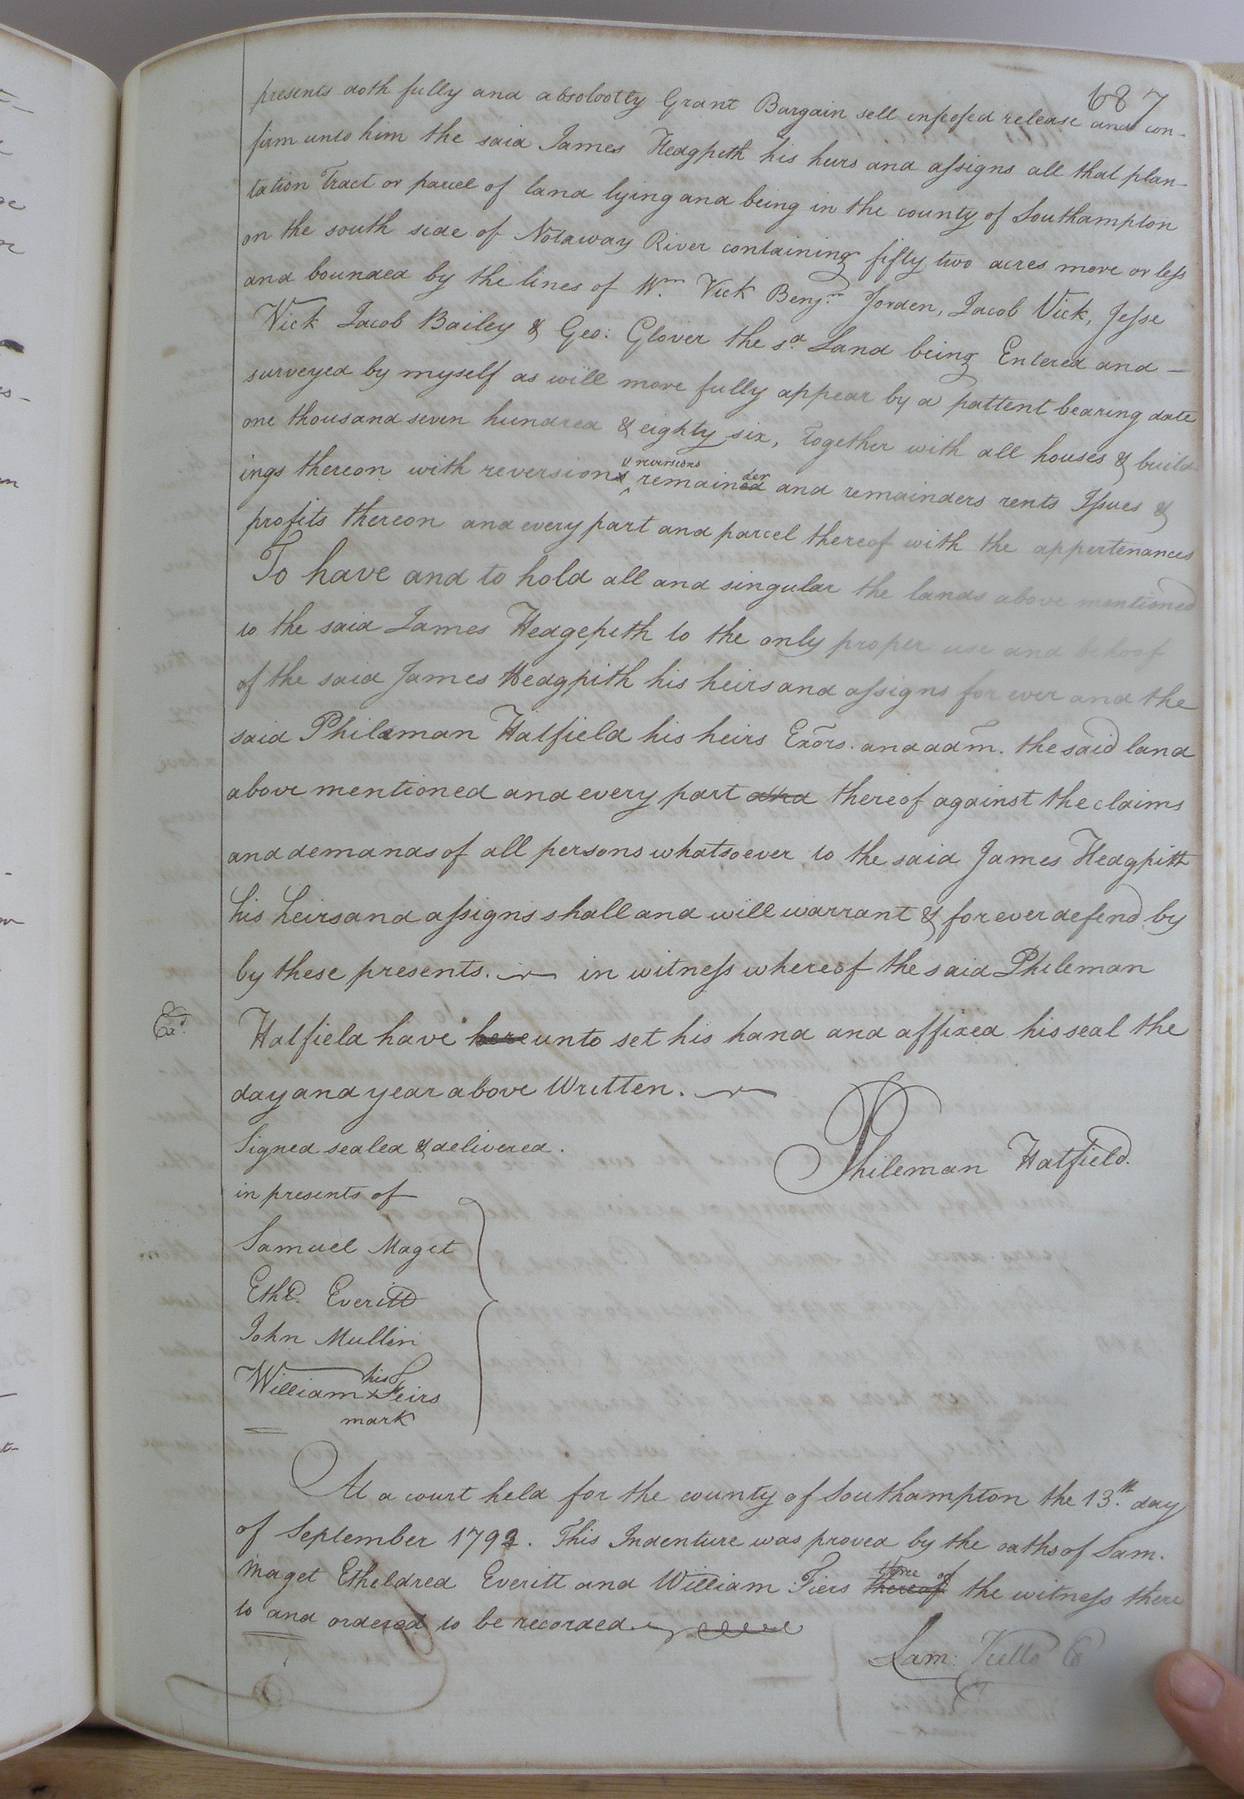 687
presents doth fully and absolootly Grant Bargain sell infeofed release and con-
firm unto him the said James Hedgpeth his heirs and assigns all that plan-
tation Tract or parcel of land lying and being in the county of Southampton
on the south side of Notaway River containing fifty two acres more or less
and bounded by the lines of Wm. Vick Benjn. Jorden, Jacob Vick, Jesse
Vick Jacob Bailey & Geo: Glover the sd. Land being Entered and —
surveyed by myself as will more fully appear by a pattent bearing date
one thousand seven hundred & eighty six, Together with all houses & build-
ings thereon with reversion & reversions remainder and remainders rents Issues &
profits thereon and every part and parcel thereof with the appertenances
To have and to hold all and singular the lands above mentioned
to the said James Hedgepith to the only proper use and behoof
of the said James Hedgpith his heirs and assigns for ever and the
said Phileman Hatfield his heirs Exors. and adm. the said land
above mentioned and every part and thereof against the claims
and demands of all persons whatsoever to the said James Hedgpith
his heirs and assigns shall and will warrant & for ever defend by
by these presents. in witness whereof the said Phileman
Exd.
Hatfield have here unto set his hand and affixed his seal the
day and year above Written.
Signed sealed & delivered.
in presents of
Phileman Hatfield.
Samuel Maget
Ethd. Everitt
John Mullin
William his x Feirs
mark
At a court held for the county of Southampton the 13th. day
of September 1792. This Indenture was proved by the oaths of Sam.
Maget Etheldred Everitt and William Fiers thereof three of the witness there
to and ordered to be recorded
Sam: Kello C